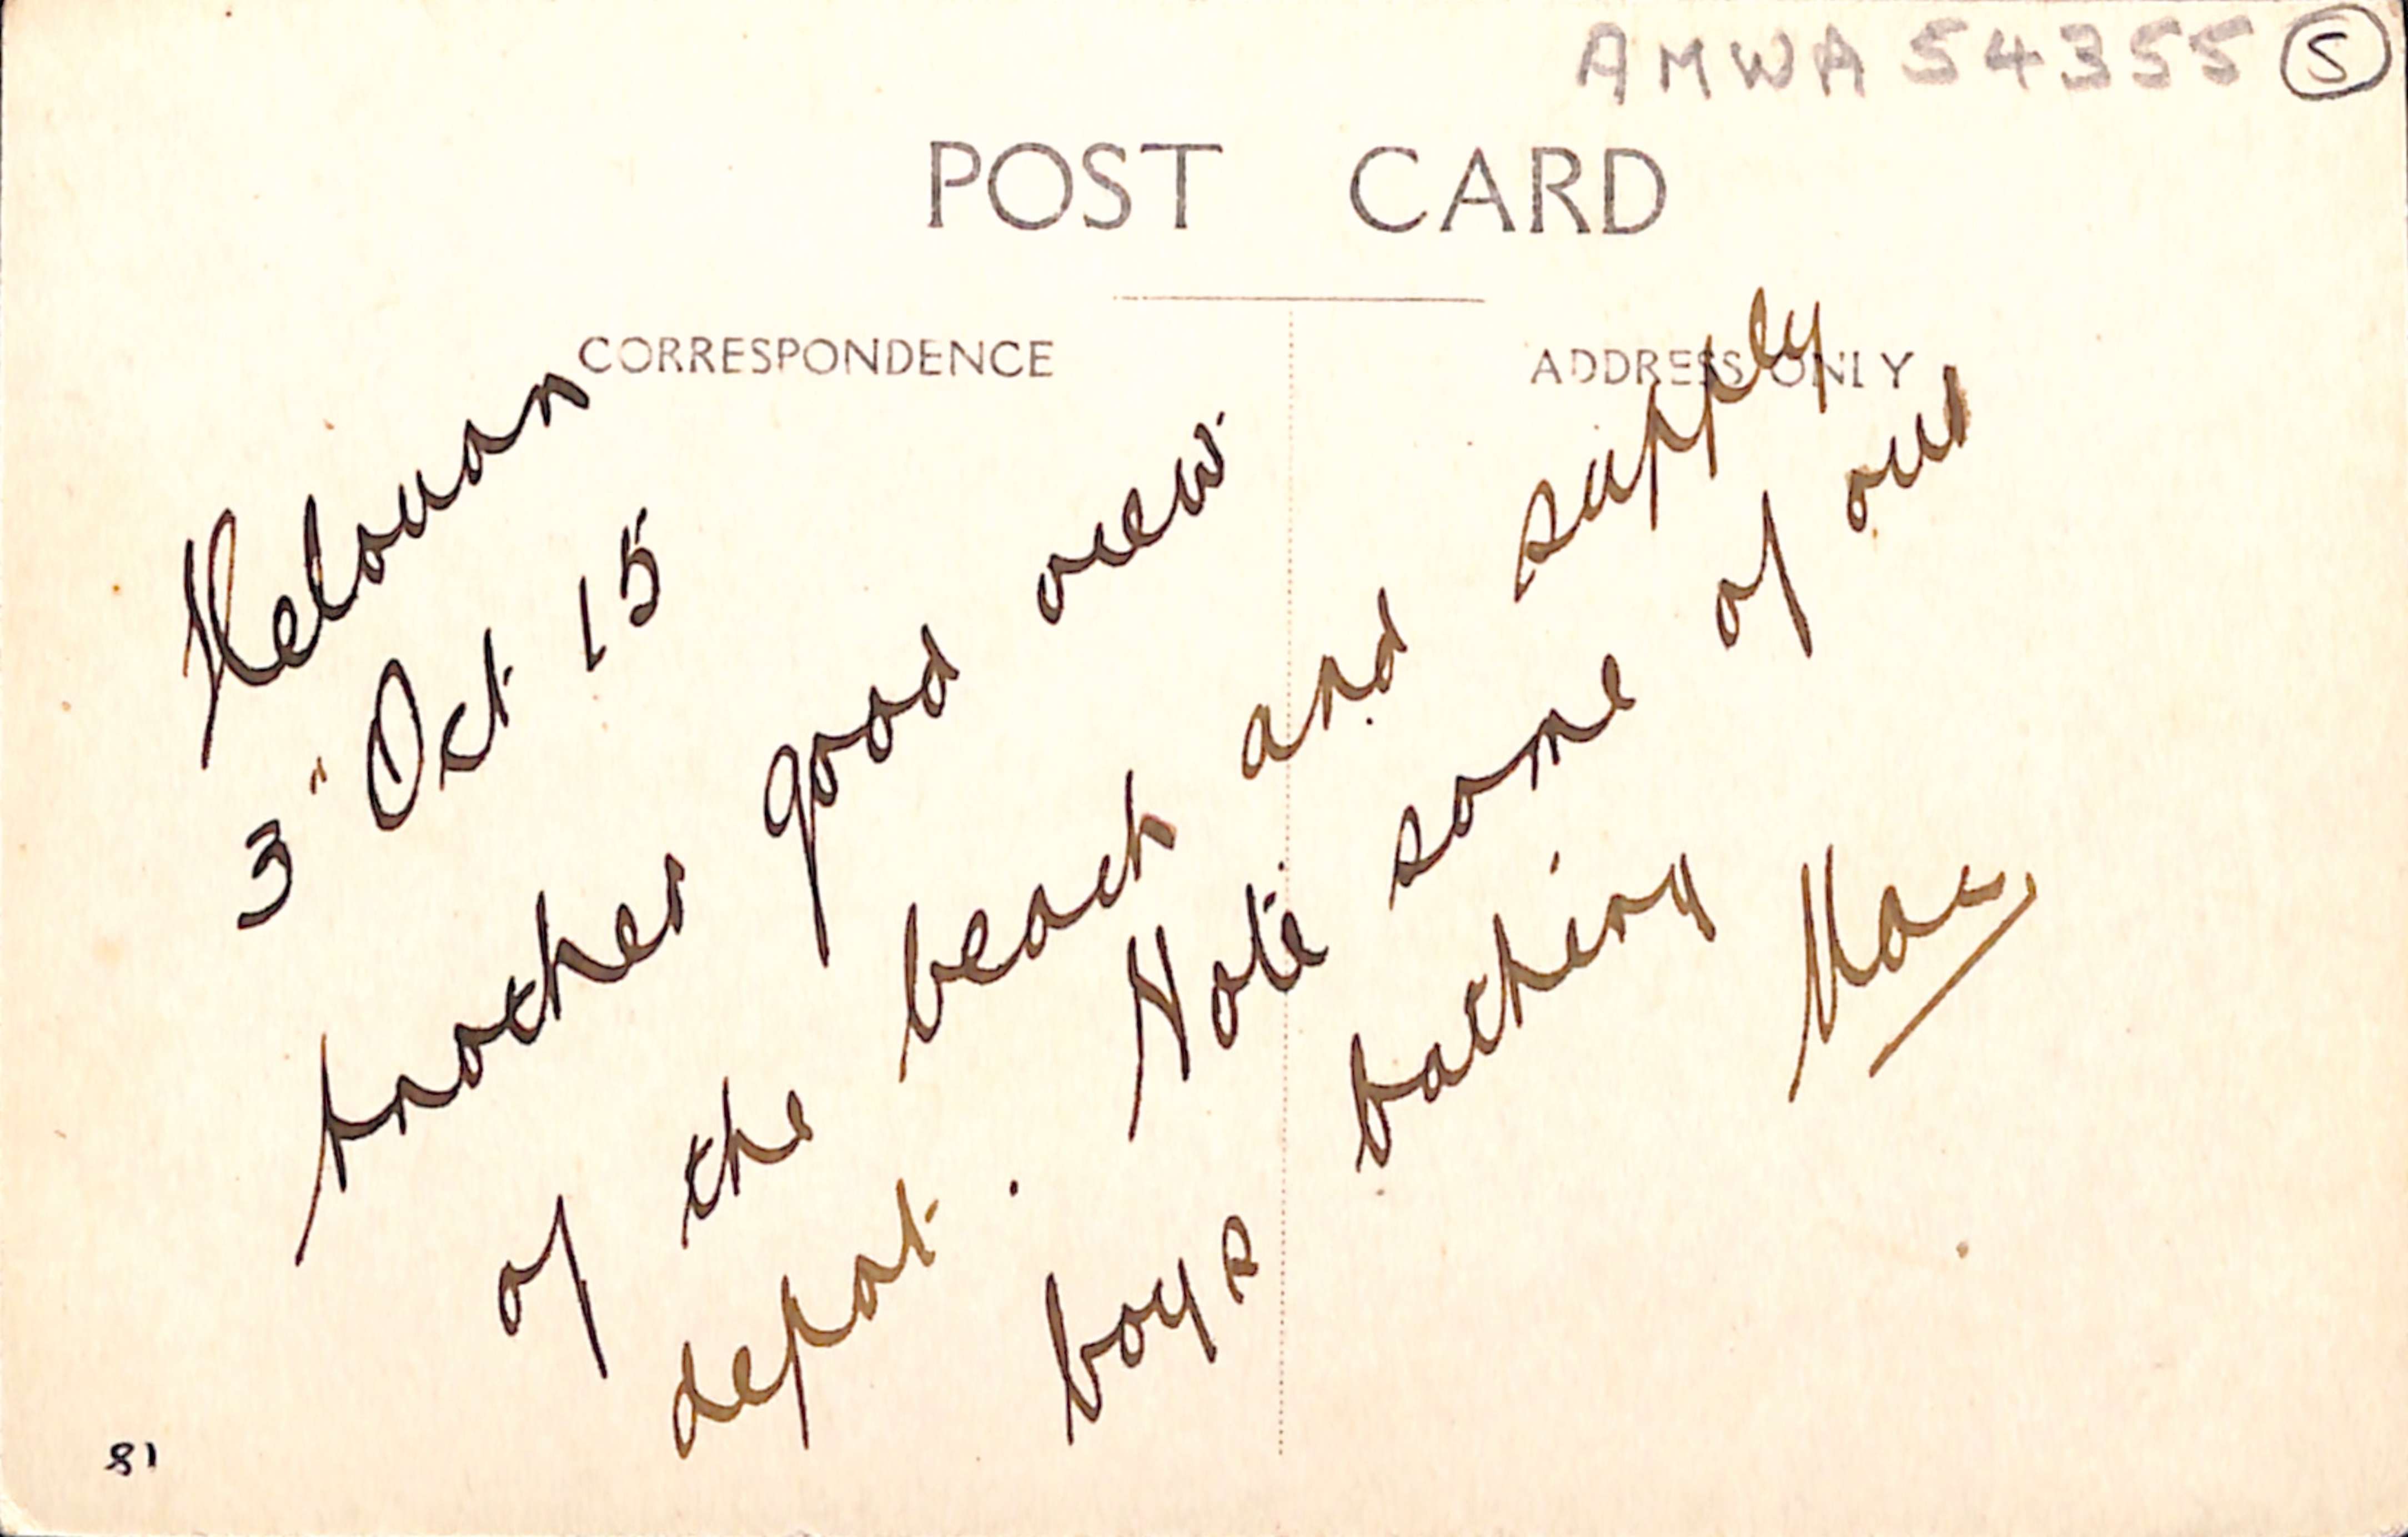 AMWA 54355 5
POST CARD
CORRESPONDENCE
ADDRESS ONLY
Helouan
3" Oct 15
Another good view
of the beach and supply
depot. Note some of our
boys bathing
Mac
81